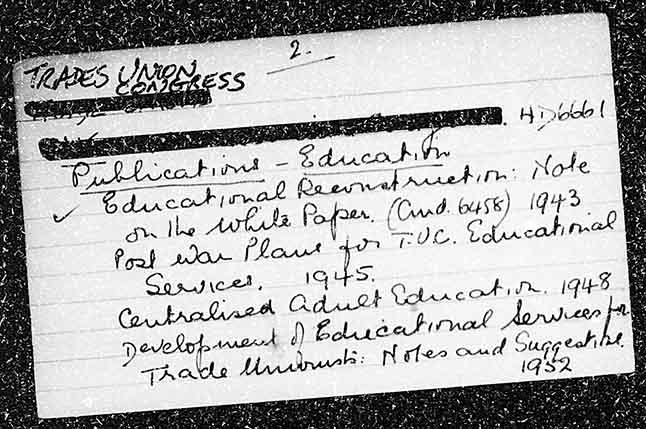 2.
TRADES UNION
CONGRESS
HD6661
Publications – Education
✓ Educational Reconstruction: Note
on the White Paper. (Cmd. 6458) 1943
Post War Plans for T.U.C. Educational
Services. 1945.
Centralised Adult Education. 1948
Development of Educational Services for
Trade Unionists: Notes and Suggestions.
1952